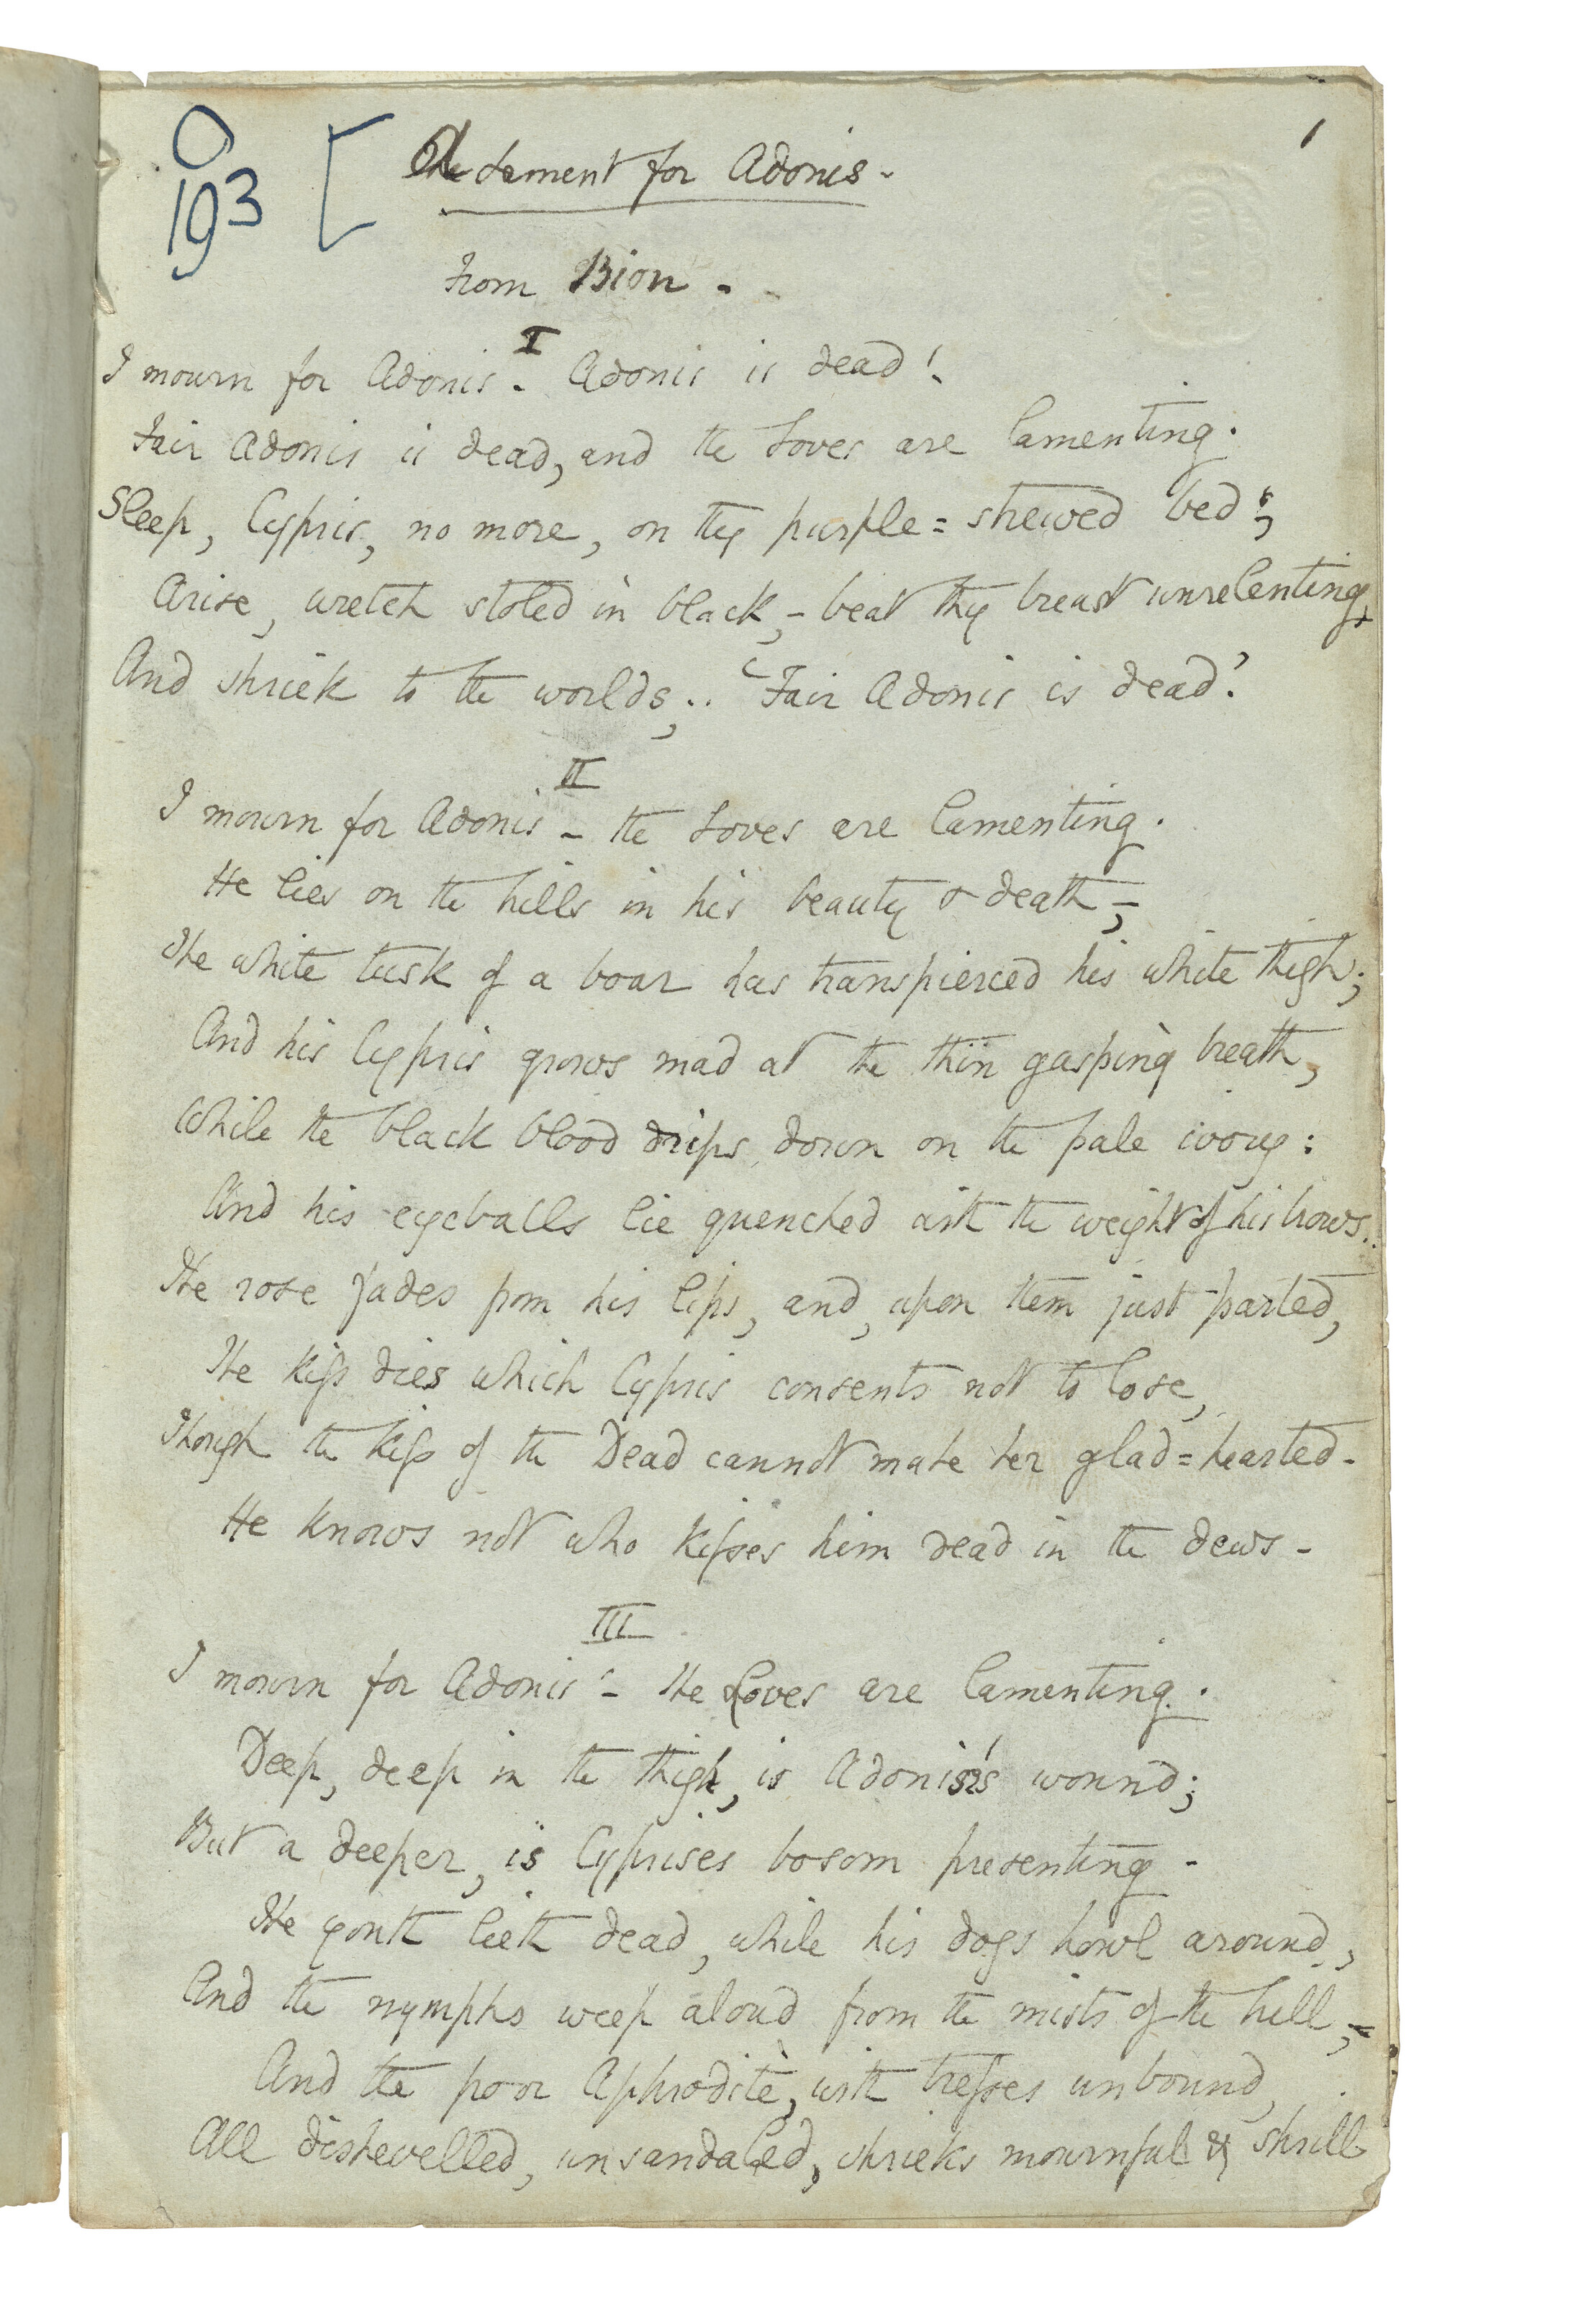 O
193 [
1
A Lament for Adonis -
From Bion -
I
I mourn for Adonis - Adonis is dead!
Fair Adonis is dead, and the Loves are lamenting.
Sleep, Cypris, no more, on thy purple=strewed bed;
Arise, wretch stoled in black, - beat thy breast unrelenting,
And shriek to the worlds, .. 'Fair Adonis is dead.'
II
I mourn for Adonis - the Loves are lamenting.
He lies on the hills in his beauty & death, -
The white tusk of a boar has transpierced his white thigh;
And his Cypris grows mad at the thin gasping breath,
While the black blood drips down on the pale ivory:
And his eyeballs lie quenched with the weight of his brows..
The rose fades from his lips, and, upon them just parted,
The kiss dies which Cypris consents not to lose,
Though the kiss of the Dead cannot make her glad=hearted -
He knows not who kisses him dead in the dews -
III
I mourn for Adonis - the Loves are lamenting.
Deep, deep in the thigh, is Adonis's wound;
But a deeper, is Cyprises bosom presenting -
The youth lieth dead, while his dogs howl around,
And the nymphs weep aloud from the mists of the hill, -
And the poor Aphroditè, with tresses unbound,
All dishevelled, unsandaled, shrieks mournful & shrill